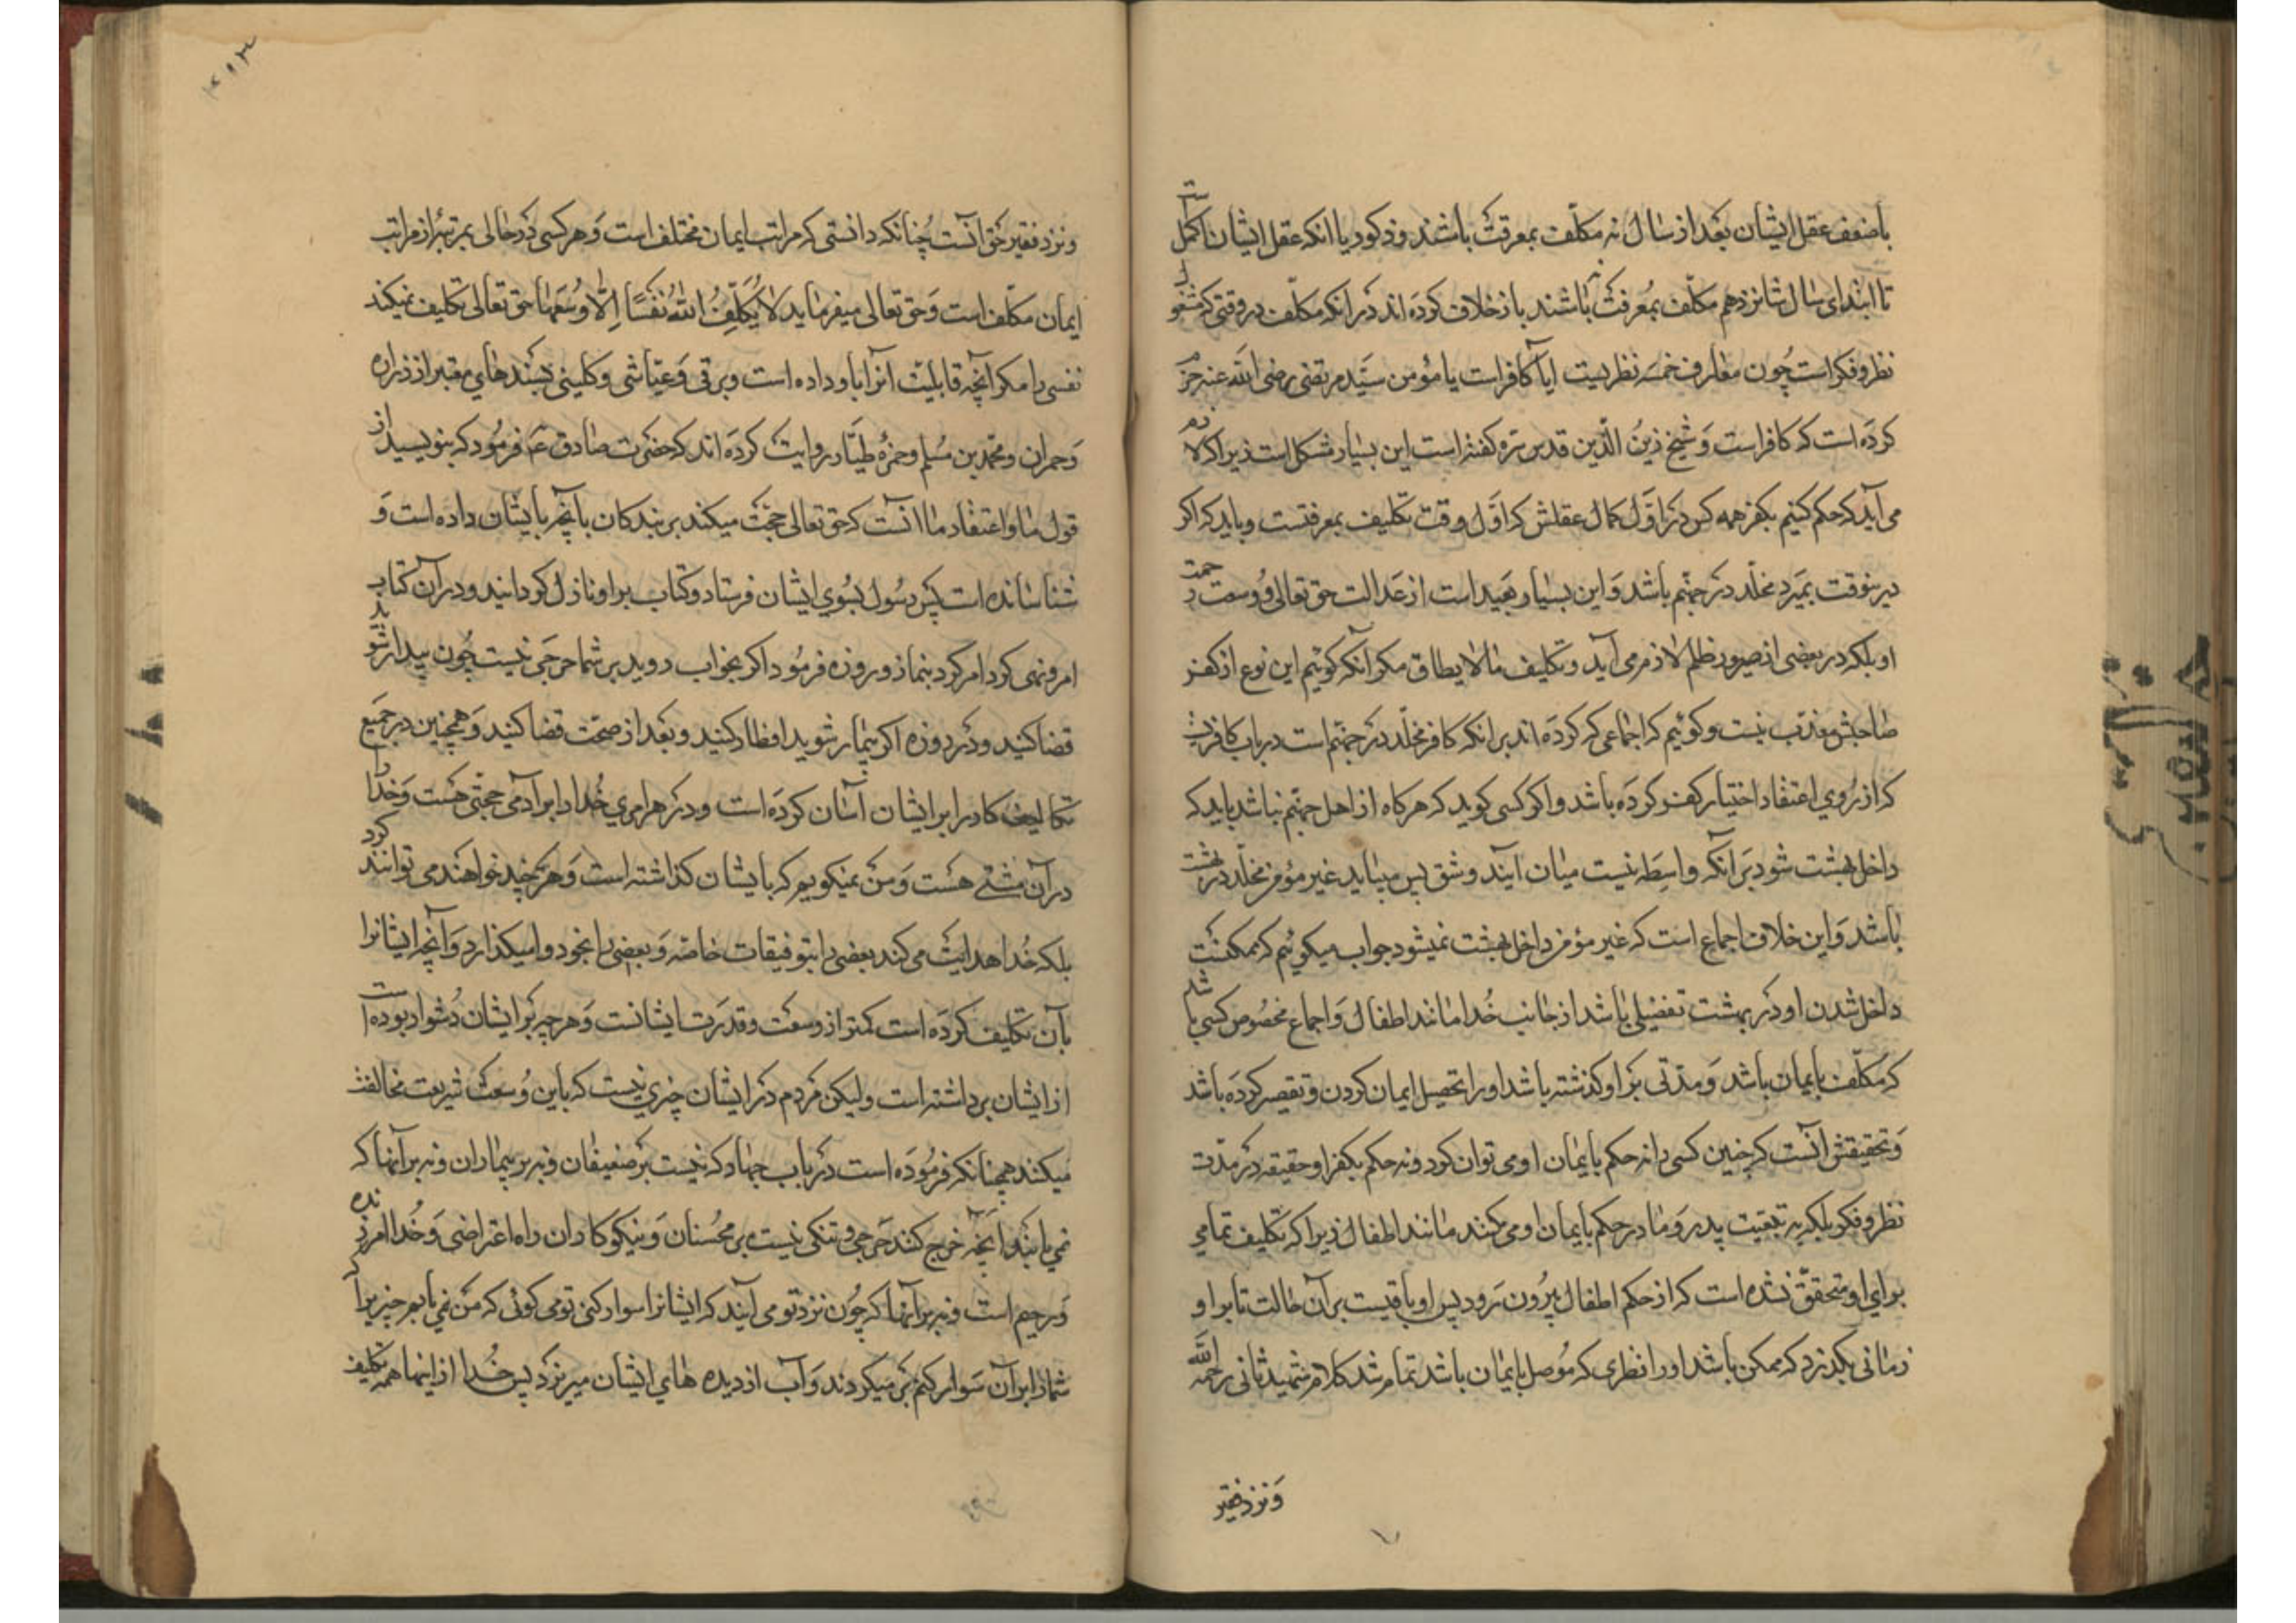 باضعف عقل ایشان بعد از سال نه مکلّف بمعرفت باشند و ذکور با انکه عقل ایشان اکمل است
تا ابتدای سال شانزدهم مکلّف بمعرفت نباشند باز خلاف کرده اند در انکه مکلّف در وقتی که مشغول
نظر و فکر است چون معارف خمسه نظریست ایا کافر است یا مؤمن سیّد مرتضی رضی الله عنه جزم
کرده است که کافر است و شیخ زین الدّین قدس سره کفته است این بسیار مشکل است زیرا که لازم
می آید که حکم کنیم بکفر همه کس در اوّل کمال عقلش که اوّل وقت تکلیف بمعرفتست و باید که اکر
درینوقت بمیرد مخلّد در جهنّم باشد و این بسیار بعید است از عدالت حق تعالی و وسعت رحمت
او بلکه در بعضی از صور ظلم لازم می آید و تکلیف مالا یطاق مکر آنکه کوئیم این نوع از کفر
صاحبش معذّب نیست و کوئیم که اجماعی که کرده اند بر انکه کافر مخلّد در جهنّم است در باب کافریست
که از روی اعتقاد اختیار کفر کرده باشد و اکر کسی کوید که هرکاه از اهل جهنّم نباشد باید که
داخل بهشت شود بر آنکه واسطه نیست میان آیند و شق پس میباید غیر مؤمن مخلّد در بهشت
باشد و این خلاف اجماع است که غیر مؤمن داخل بهشت نمیشود جواب میکوئیم که ممکنست
داخل شدن او در بهشت تفضیلی باشد از جانب خدا مانند اطفال و اجماع مخصوص کسی باشد
که مکلّف بایمان باشد و مدّتی بر او کذشته باشد او را تحصیل ایمان کردن و تقصیر کرده باشد
و تحقیقش آنست که چنین کسی را نه حکم بایمان او می توان کرد و نه حکم بکفر او حقیقه در مدّت
نظر و فکر بلکه به تبعیت پدر و مادر حکم بایمان او می کنند مانند اطفال زیرا که تکلیف تمامی
برای او متحقّق نشده است که از حکم اطفال بیرون رود پس او باقیست بر آن حالت تا بر او
زمانی بکذرد که ممکن باشد او را نظری که موصل بایمان باشد تمام شد کلام شهید ثانی رحمه الله
و نزد فقیر
ونزد فقیر حق آنست چنانکه دانستی که مراتب ایمان مختلف است و هر کسی در حالی بمرتبهٔ از مراتب
ایمان مکلّف است و حق تعالی میفرماید لَا یُکَلِّفُ اللهُ نَفْسًا اِلَّا وُسْعَهَا حق تعالی تکلیف نمیکند
نفسی را مکر آنچه قابلیّت آنرا باو داده است و برقی و عیّاشی و کلینی بسند های معتبر از زراره
و حمران و محمّد بن مسلم و حمزهٔ طیّار روایت کرده اند که حضرت صادق ع فرمود که بنویسید از
قول ما و اعتقاد ما انست که حق تعالی حجّت میکند بر بندکان بآنچه بایشان داده است و
شناسانده است پس رسول بسوی ایشان فرستاد و کتاب بر او نازل کردانید و در آن کتاب
امر و نهی کرد امر کرد بنماز و روزه فرمود اکر بخواب روید بر شما حرجی نیست چون بیدار شوید
قضا کنید و در روزه اکر بیمار شوید افطار کنید و بعد از صحّت قضا کنید و همچنین در جمیع
تکالیف کار را بر ایشان آسان کرده است و در هر امری خدا را بر آدمی حجّتی هست و خدا را
در آن مشیّتی هست و من نمیکویم که بایشان کذاشته است و هرچه خواهند می توانند کرد
بلکه خدا هدایت می کند بعضی را بتوفیقات خاصّه و بعضی را بخود وا میکذارد و آنچه ایشانرا
بآن تکلیف کرده است کمتر از وسعت و قدرت ایشانست و هرچه بر ایشان دشوار بوده است
از ایشان برداشته است و لیکن مردم در ایشان چیزی نیست که باین وسعت شریعت مخالفت
میکنند همچنانکه فرموده است در باب جهاد که نیست بر ضعیفان و نه بر بیماران و نه بر آنها که
نمی یابند آنچه خرج کنند حرجی و تنکی نیست بر محسنان و نیکوکاران راه اعتراضی و خدا امرزنده
و رحیم است و نه بر آنها که چون نزد تو می آیند که ایشانرا سوار کنی تو می کوئی که من نمی یابم چیزیرا که
شما را بر آن سوار کنم بر میکردند و آب از دیده های ایشان میریزد پس خدا از اینها همه تکلیف